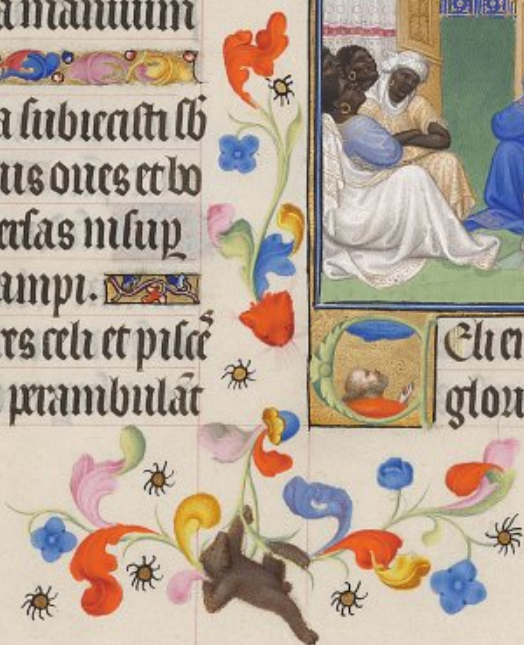 a manuum
a subiecisti sb̄
us oues et bo
ersas insup
ampi.
rs celi et pisces
perambulāt
CEli en
glori